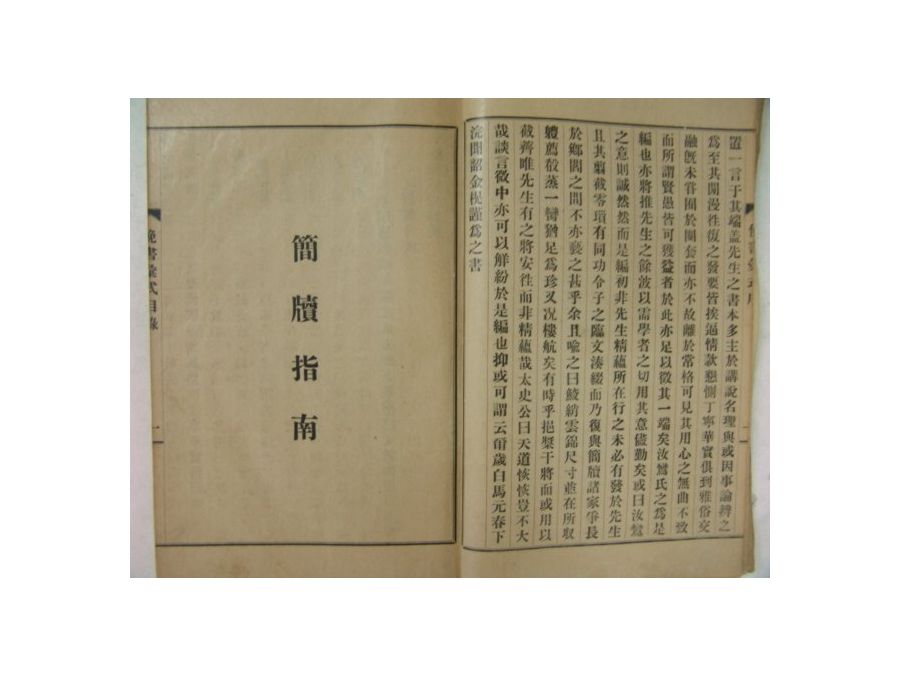 置一言于其端盖先生之書本多主於講說名理與或因事論辨之
爲至其閒漫徃復之發要皆挨逼情款懇惻丁寧華實俱到雅俗交
融旣未甞囿於圈套而亦不故離於常格可見其用心之無曲不致
而所謂賢愚皆可獲益者於此亦足以徵其一端矣汝鴛氏之爲是
編也亦將推先生之餘波以需學者之切用其意儘勤矣或曰汝鴛
之意則誠然然而是編初非先生精蘊所在行之未必有發於先生
且其翦截零瑣有同功令子之臨文湊綴而乃復與簡牘諸家爭長
於鄉閭之間不亦褻之甚乎余且喩之曰鮫綃雲錦尺寸並在所取
軆薦殽蒸一臠猶足爲珍又况樓航矣有時乎挹漿干將而或用以
截薺唯先生有之將安徃而非精蘊哉太史公曰天道恢恢豈不大
哉談言微中亦可以觧紛於是編也抑或可謂云爾歲白馬元春下
浣聞韶金 謹爲之書
簡牘指南
俛書 式目錄
一